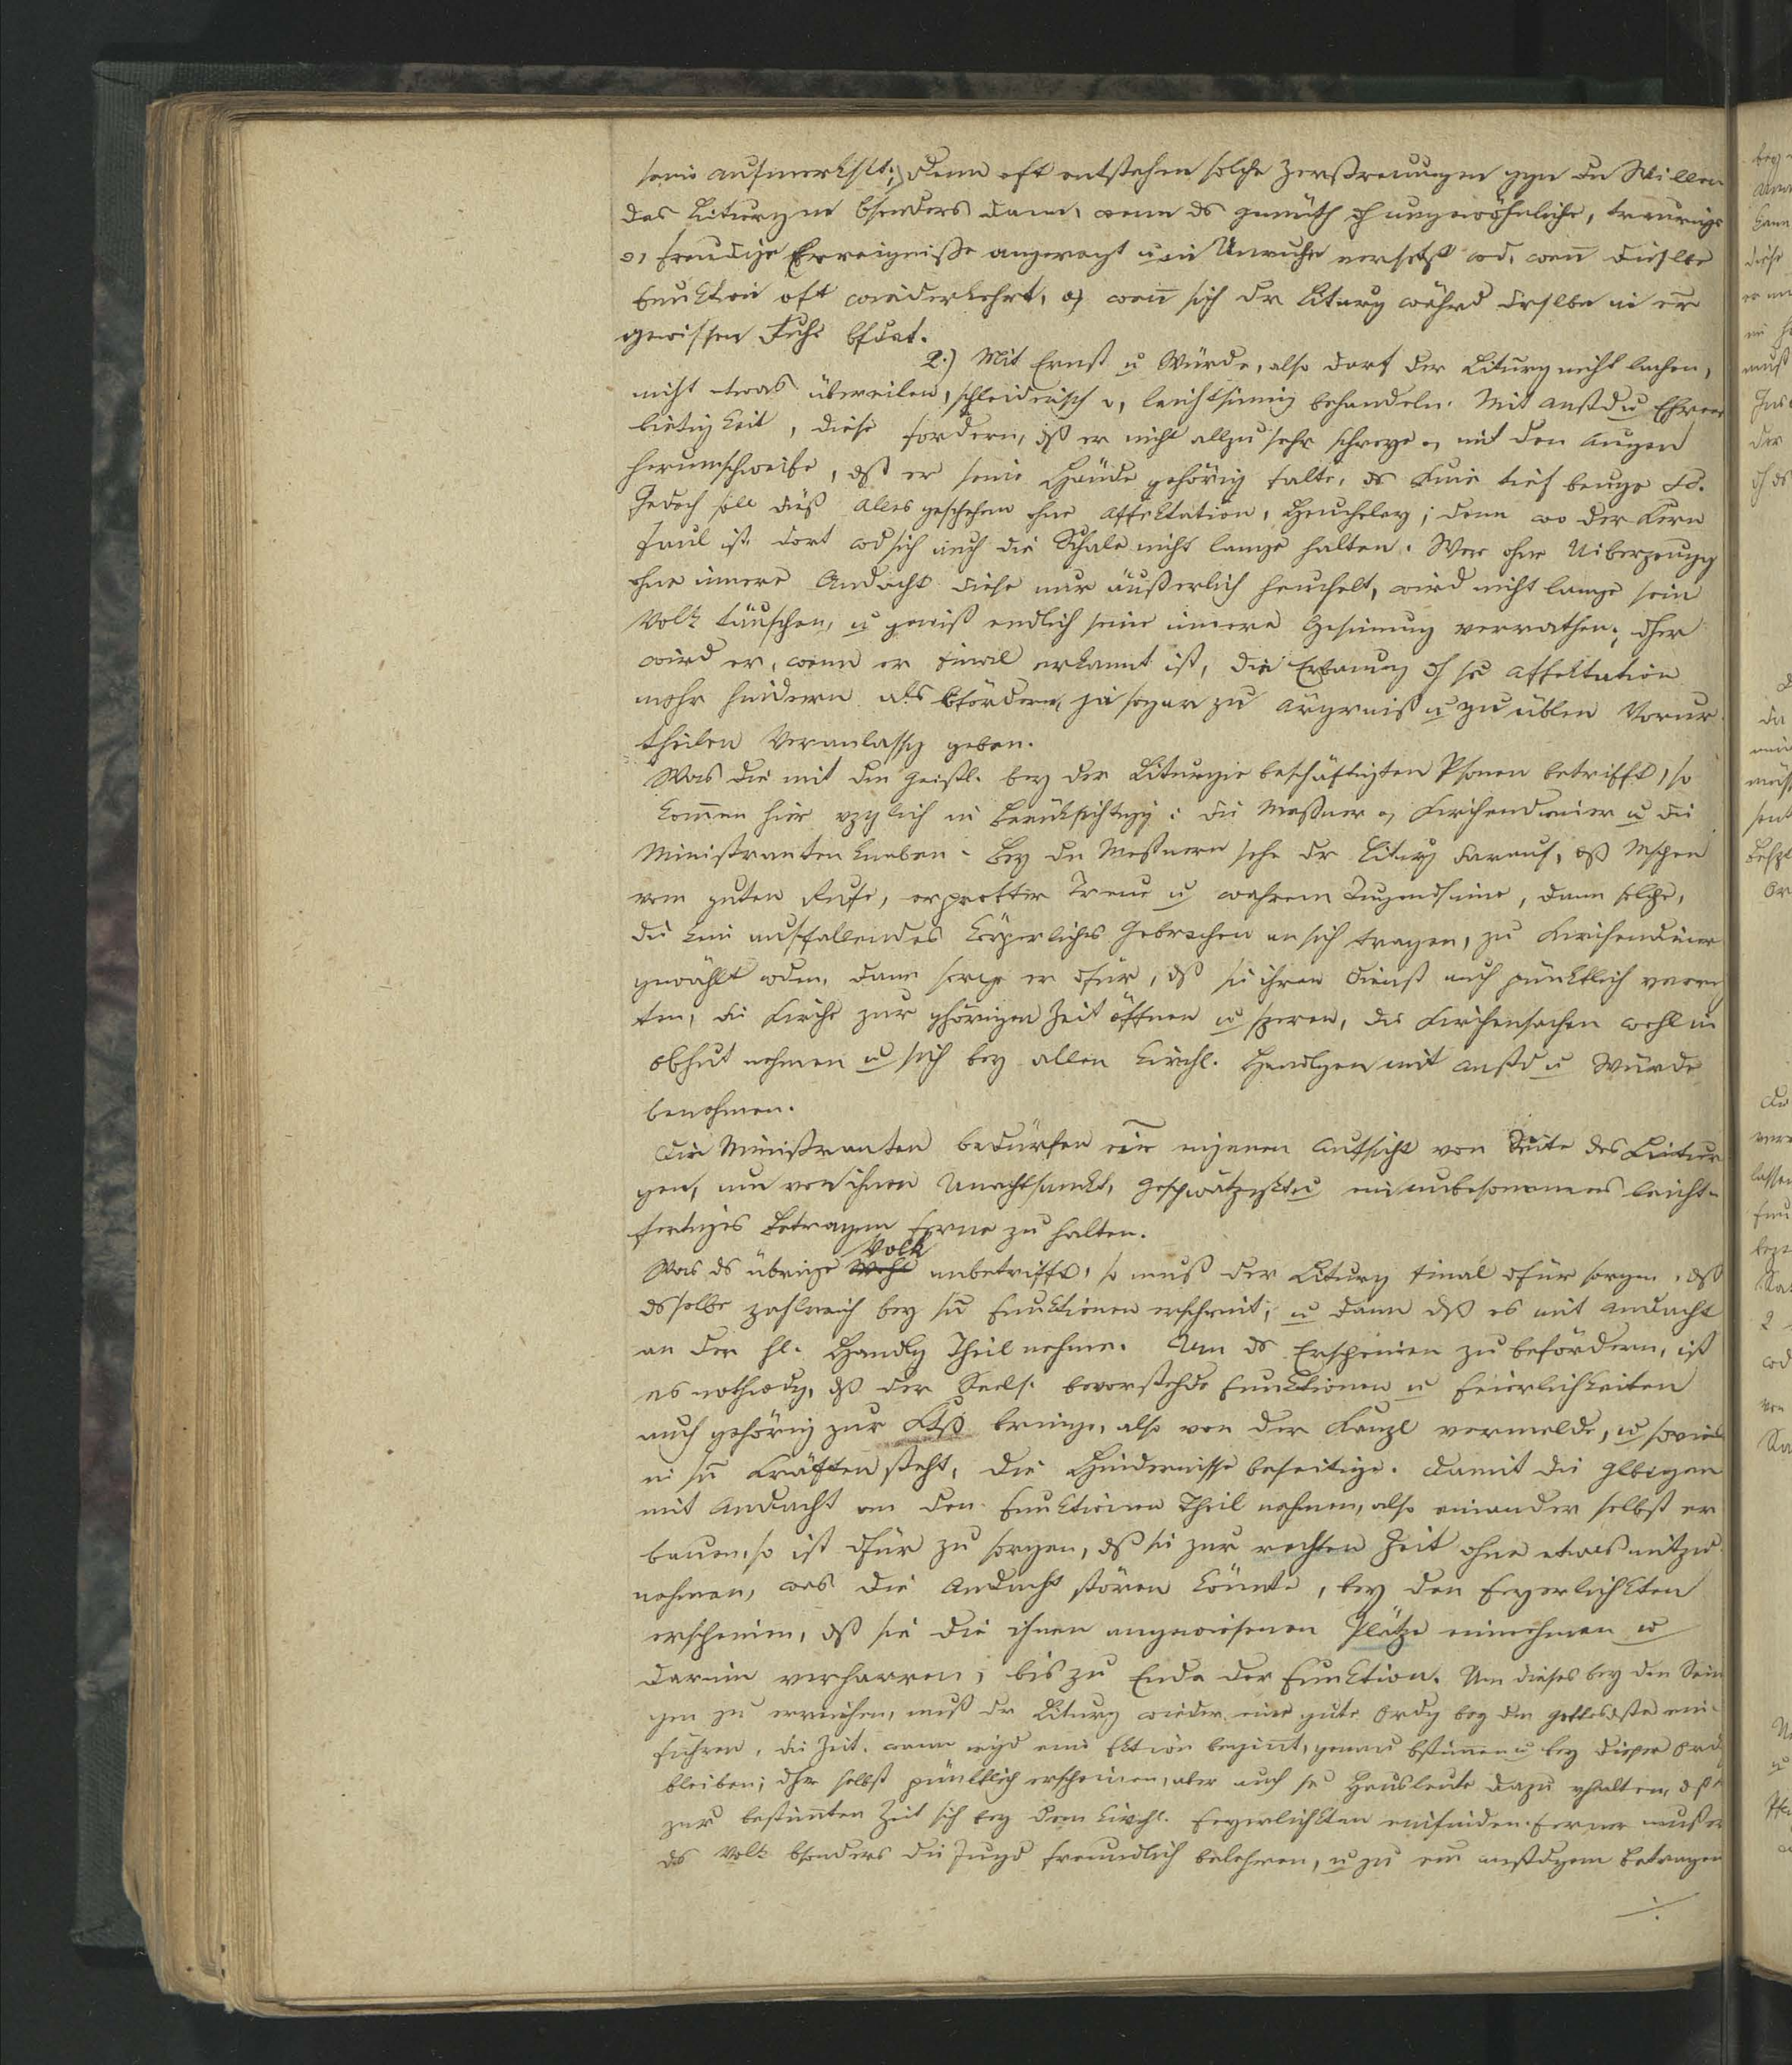 seine Aufmerkskt; denn oft entstehen solche Zerstreuungen gegen den Willen
des Liturgen bsonders dann, wenn ds Gemüth dh ungewöhnliche, traurige
o, freudige Erreigniße angeregt u in Unruhe versetzt wd, wen̄ dieselbe
Funktion oft wiederkehrt, o, wen̄ sich dr Liturg währd drselben in er
gewissen
2.) Mit Ernst u Würde, also darf der Liturg nicht lachen,
nicht etwas übereilen, schleiderisch o, leichtsinnig behandeln. Mit Anstd u Ehrer
bietigkeit, diese fordern, dß er nicht allzu sehr schreye o, mit den Augen
herumschweife, dß er seine Hände gehörig falte, ds Knie tief beuge &c.
Jedoch soll dieß Alles geschehen ohne Affektation, Heucheley; denn wo der Kern
faul ist, dort wd sich auch die Schale nicht lange halten. Wer ohne Uiberzeugg
ohne innere Andacht diese nur äußerlich heuchelt, wird nicht lange sein
Volk täuschen, u gewiß endlich seine innere Gesinnung verrathen; dher
wird er, wenn er einal erkannt ist, die Erbauung dh se Affektation
mehr hindern als bfördern, ja sogar zu Ärgrniß u zu üblen Vorur
theilen Veranlassg geben.
Was die mit den Geistl. bey der Liturgie beschäftigten Psonen betrifft, so
kom̄en hier vzglich in Berücksichtigg: die Meßner o, Kirchendiener u die
Ministrantenknaben. Bey den Meßnern sehe dr Liturg darauf, dß Mschen
vom guten Rufe, erprobter Treue u wahrem Tugendsinne, dann solche,
die kein auffallendes körperliches Gebrechen an sich tragen, zu Kirchendiener
gewählt wden, dann sorge er dfür, dß sie ihren Dienst auch pünktlich verrich
ten, die Kirche zur ghörigen Zeit öffnen u speren, die Kirchensachen wohl in
Obhut nehmen u sich bey allen kirchl. Handlgen mit Anstd u Würde
benehmen.
Die Ministranten bedürfen eine eigenen Aufsicht von Seite des Litur
gen, um von ihnen Unachtsamkt, Geschwätzigkt u ein unbesonnenes leicht-
fertiges Betragen ferne zu halten.
Volk
Was ds übrige anbetrifft, so muß der Liturg einal dfür sorgen, dß
dsselbe zahlreich bey sn Funktionen erscheint, u dann dß es mit Andacht
an der hl. Handlg Theil nehme. Um ds Erscheinen zu befördern, ist
es nothwdg, dß der Seels. bevorstehde Funktionen u Feierlichkeiten
auch gehörig zur bringe, also von der Kanzl vermelde, u soviel
in sn Kräften steht, die Hindernisse beseitige. Damit die Glbigen
mit Andacht an den Funktionen Theil nehmen, also einander selbst er
bauen, so ist dfür zu sorgen, dß sie zur rechten Zeit ohne etwas mitzu
nehmen, was die Andacht stören könnte, bey den Feyerlichkten
erscheinen, dß sie die ihnen angewiesenen Plätze einnehmen u
darin verharren, bis zu Ende der Funktion. Um dieses bey den Sein
gen zu erreichen, muß dr Liturg wieder eine gute Ordg bey den Gottesdste ein-
führen, die Zeit, wann eine Fktion begin̄t, genau bstim̄en u bey dieser Ord
bleiben; dher selbst pünktlich erscheinen, aber auch se Hausleute dazu vhalten, dß
zur bestim̄ten Zeit sich bey den kirchl. Feyerlichkten einfinden. Ferner muß er
ds Volk bsonders die Jugd freundlich belehren, u zu ein anstdgem Betragen